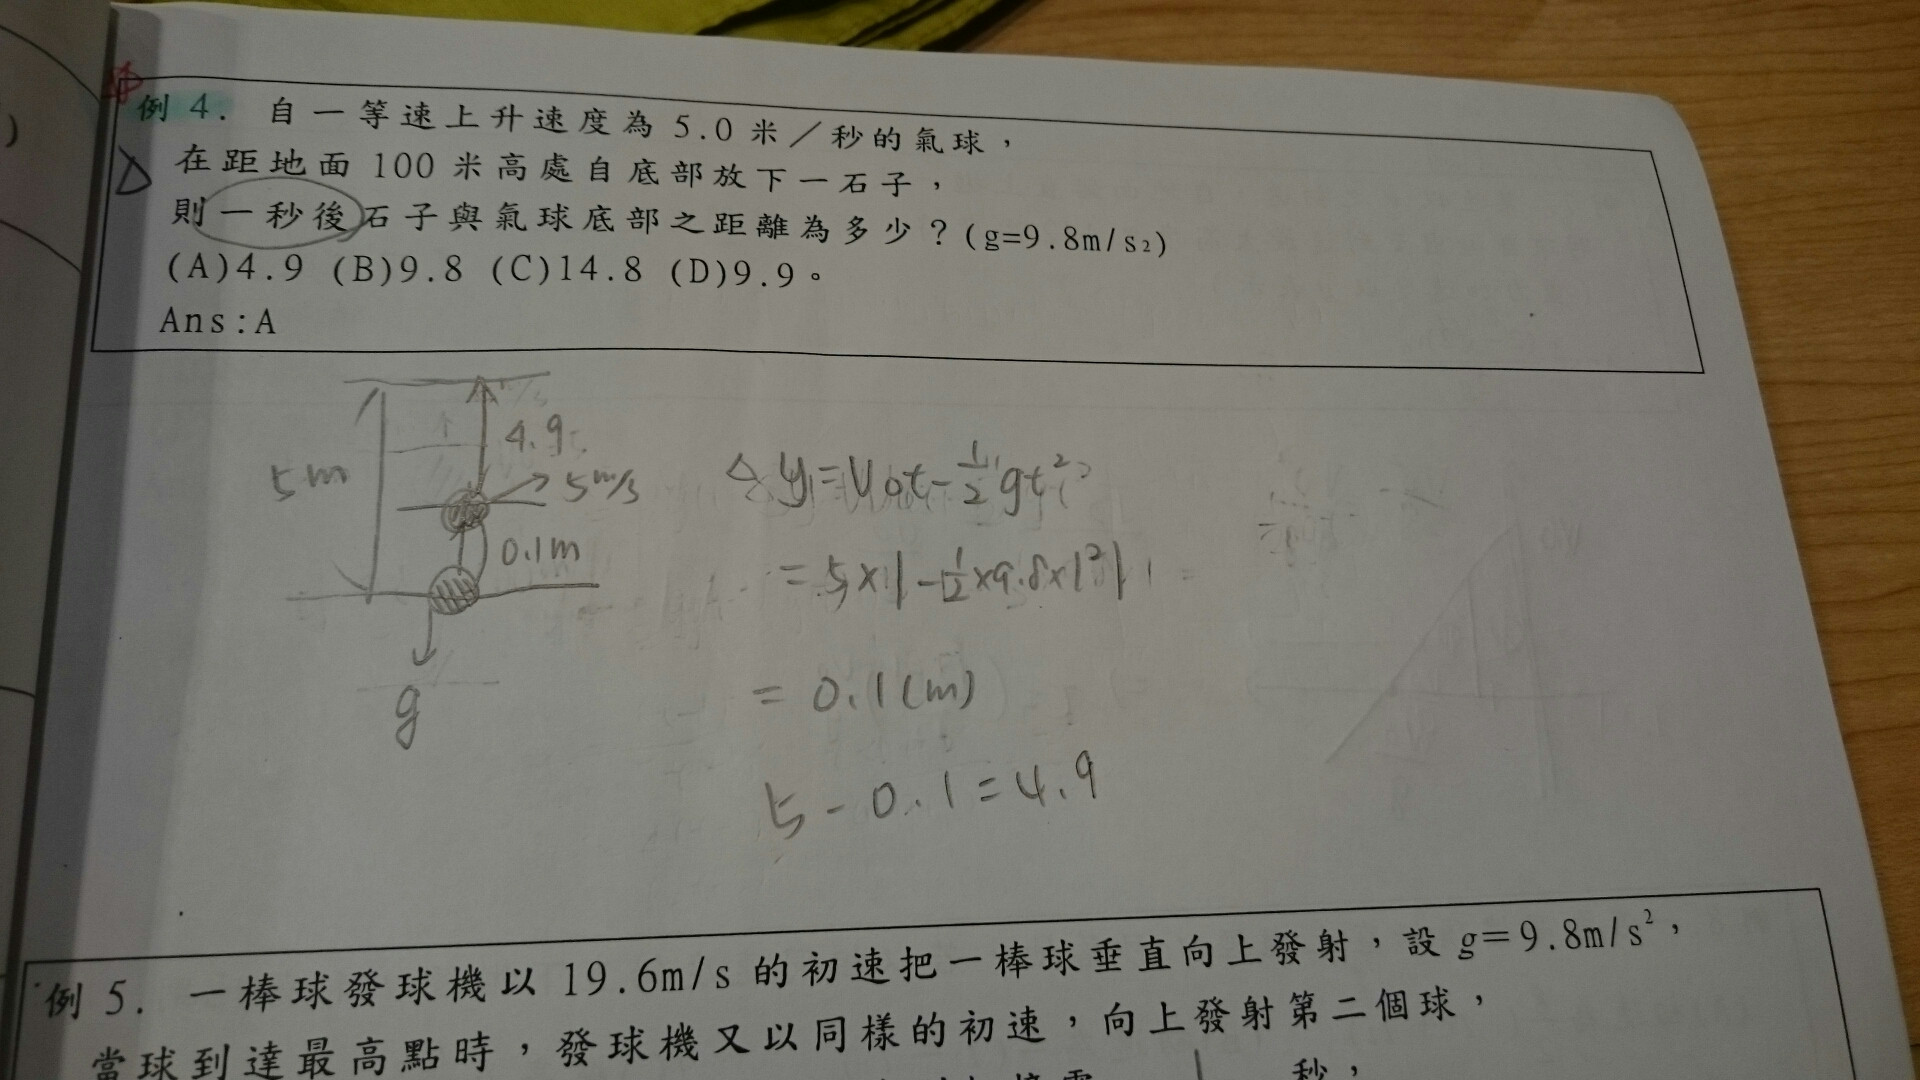 例 4. 自一等速上升速度為 5.0 米/秒的氣球，
在距地面 100 米高處自底部放下一石子，
則一秒後石子與氣球底部之距離為多少？(g=9.8m/s2)
(A)4.9 (B)9.8 (C)14.8 (D)9.9。
Ans:A
5m
4.9
5m/s
0.1m
g
△y=V0t-1/2gt²
=5×1-1/2×9.8×1²
=0.1(m)
5-0.1=4.9
例 5. 一棒球發球機以 19.6m/s 的初速把一棒球垂直向上發射，設 g=9.8m/s²，
當球到達最高點時，發球機又以同樣的初速，向上發射第二個球，
秒，